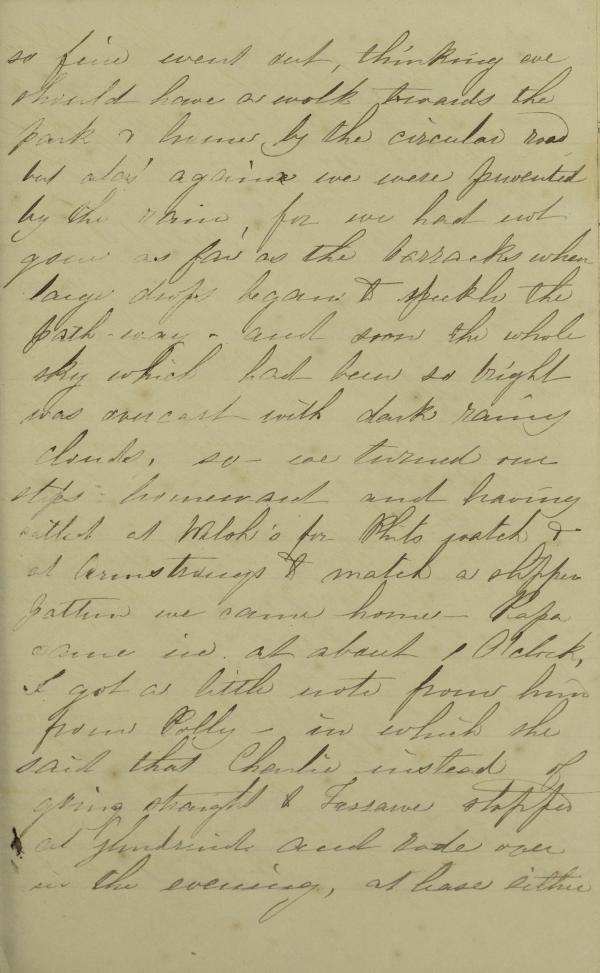 so fine went out, thinking we
should have a walk towards the
park & home by the circular road
but alas' again we were prevented
by the rain, for we had not
gone as far as the barracks when
large drops began to the
path-way - and soon the whole
sky which had been so bright
was overcast with dark rainy
clouds, so - we turned our
steps homeward and having
called at Walsh's for Phil's watch &
at Armstrongs to match a slipper
pattern we came home - Papa
came in at about 1 O'clock,
I got a little note from him
from Polly - in which she
said that Charlie instead of
going straight to stopped
at and rode over
in the evening, at least either